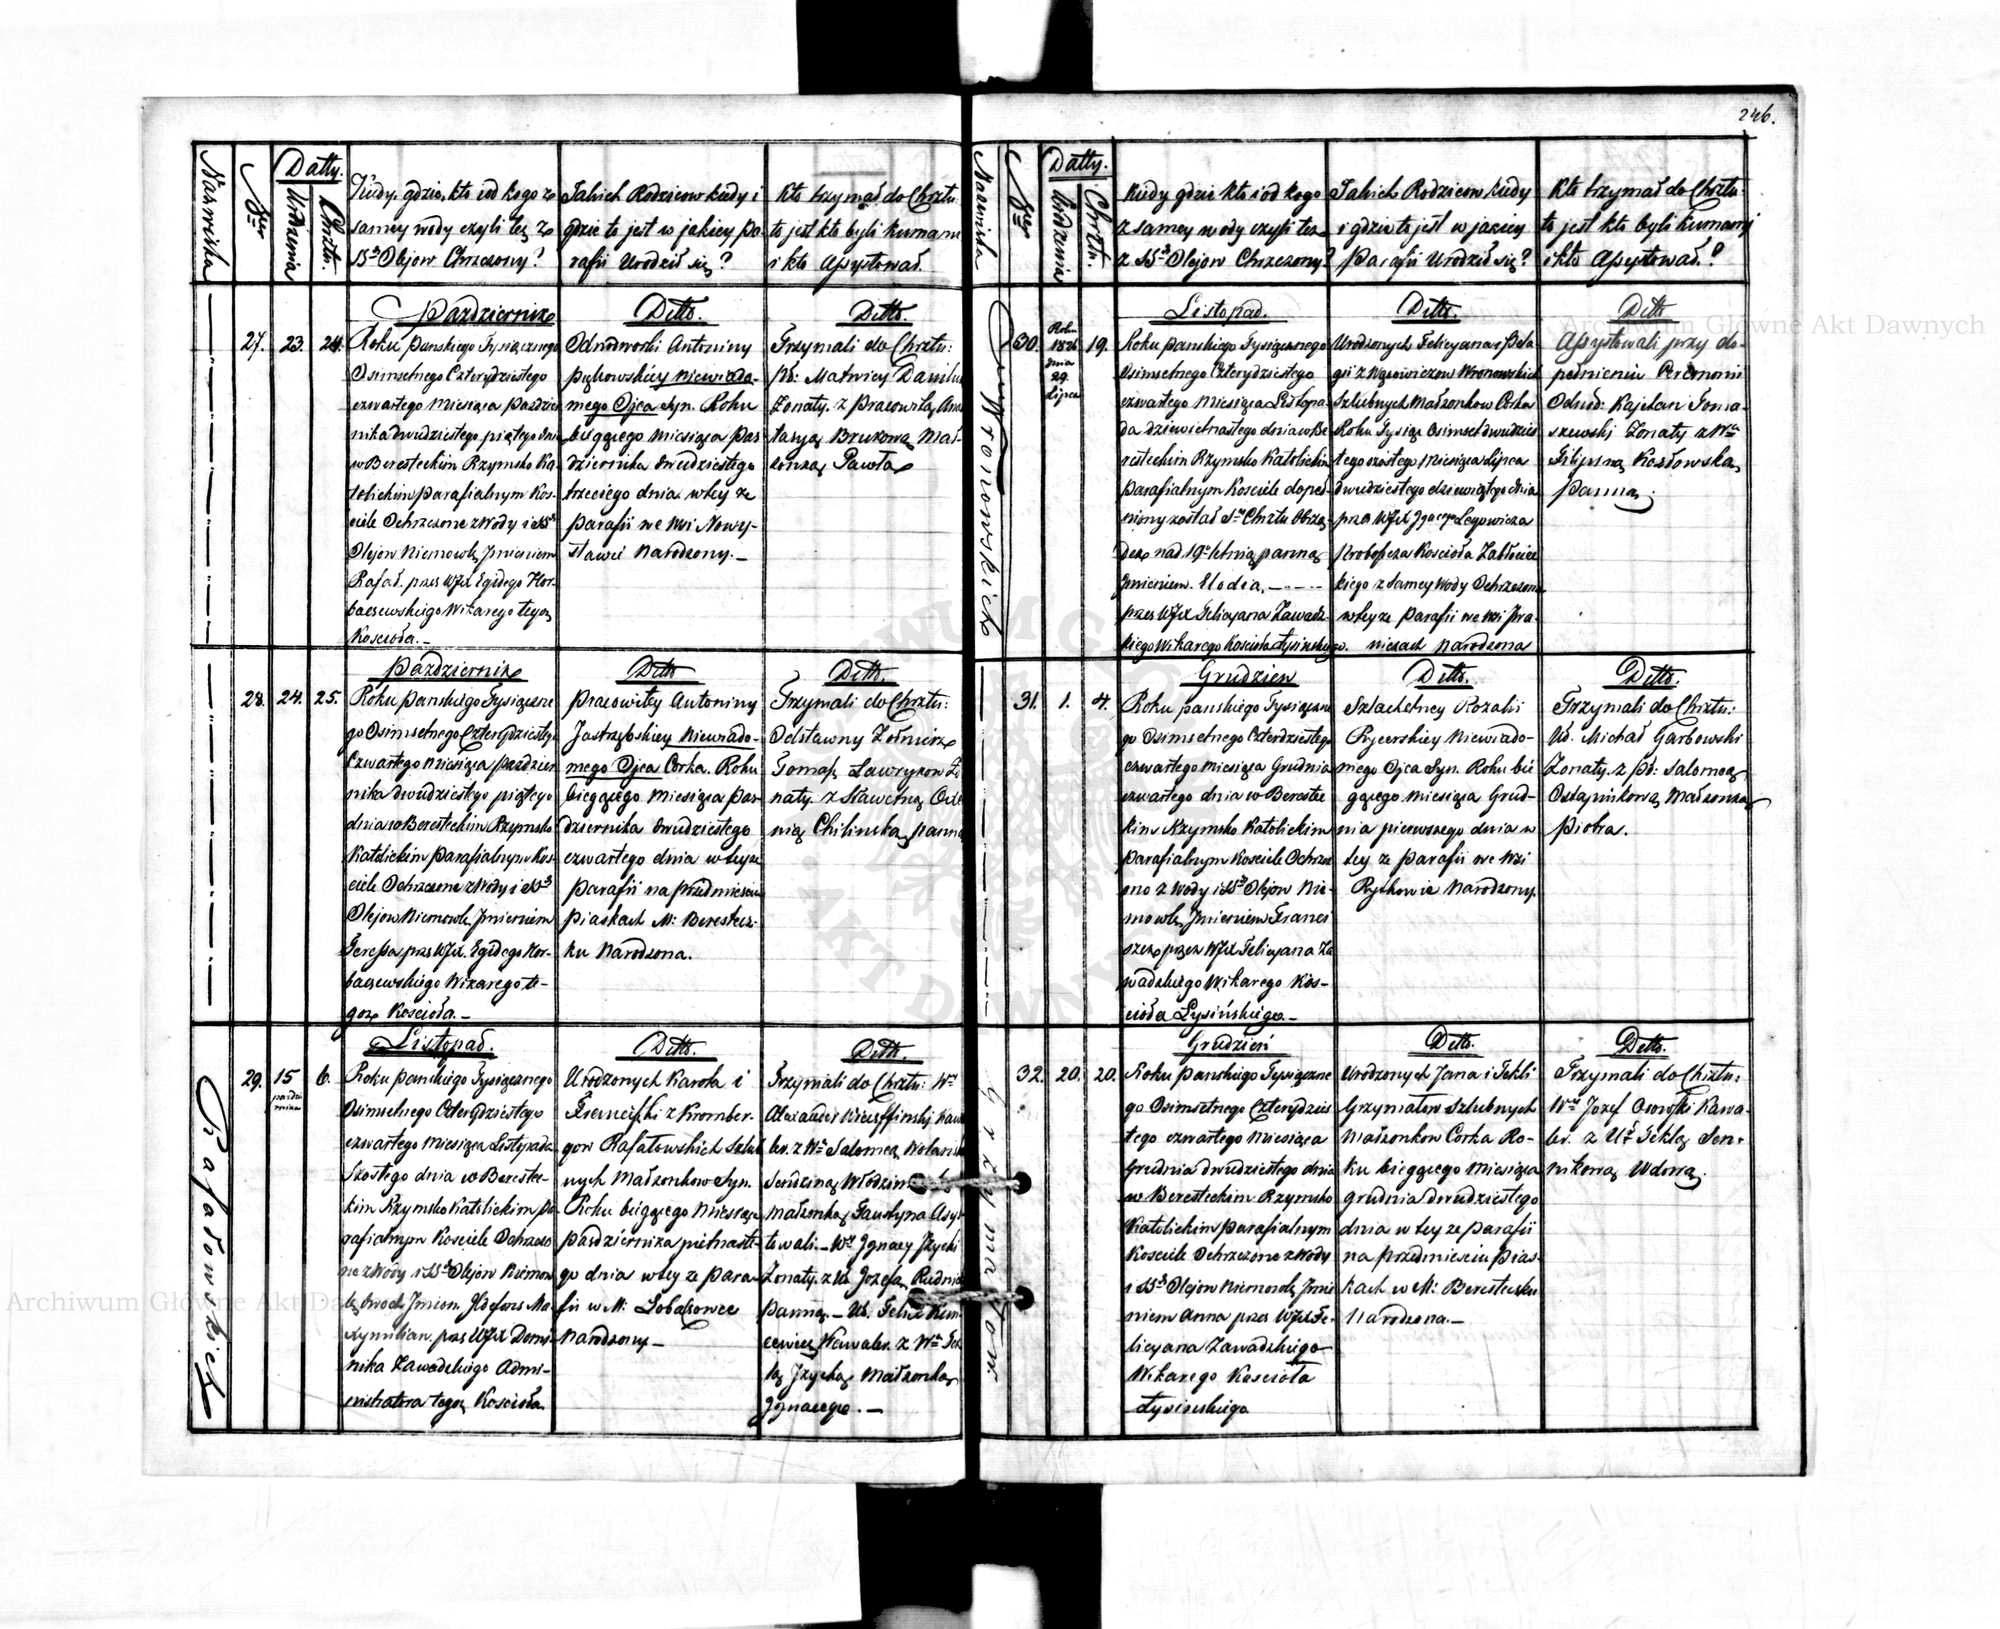 246.
Nazwiska
Ner
Datty.
Urodzenia
Chrztu.
Kiedy, gdzie, kto i od kogo z
samey wody czyli też z
SSch Olejow Chrzczony?
Jakich Rodzicow kiedy i
gdzie to jest w jakiey pa-
rafii Urodził się?
Kto trzymał do Chrztu
to jest kto byli kumami
i kto Assystował.
27.
23.
24.
Październik
Roku Pańskiego Tysiącznego
Osimsetnego Czterydziestego
czwartego Miesiąca Paździer
nika dwudziestego piątego dnia
w Beresteckim Rzymsko Ka-
tolickim parafialnym Koś-
ciele Ochrzczone z Wody i SSch
Olejow Niemowlę Jmieniem
Rafał. przez WJX Egidego Hor-
baczewskiego Wikarego tegoż
Kościoła.-
Ditto.
Odnodworki Antoniny
Pęzkowskiey niewiado-
mego Ojca Syn. Roku
biegącego Miesiąca Paź
dziernika dwudziestego
trzeciego dnia w tey ze
parafii we Wsi Nowy-
stawci Narodzony.-
Ditto.
Trzymali do Chrztu:
Matwiey Daniluk
Żonaty. z Pracowitą Ana
tasyą Brukową Mał-
żonką Pawła
28.
24.
25.
Październik
Roku Pańskiego Tysiączne
go Osimsetnego Czterydziestego
Czwartego Miesiąca Paździer
nika dwudziestego piątego
dnia w Beresteckim Rzymsko
Katolickim parafialnym Koś-
ciele Ochrzczone z Wody i SSch
Olejow Niemowlę Jmieniem
Teressa przez WJX. Egidego Hor-
baczewskiego Wikarego te-
goż Kościoła.-
Ditto
Pracowitey Antoniny
Jastrzębskiey Niewiado-
mego Ojca Corka. Roku
biegącego Miesiąca Paź-
dziernika dwudziestego
czwartego dnia w teyze
parafii na przedmieściu
Piaskach M: Beretecz-
ku Narodzona.
Ditto.
Trzymali do Chrztu:
Odstawny Żołnierz
Tomasz Ławrynow Żo
naty. z Sławetną
Chilincką panną
Rafałowskich
29.
15
paździ
rnika
6.
Listopad.
Roku Pańskiego Tysiącznego
Osimsetnego Czterydziestego
czwartego Miesiąca Listopada
Szostego dnia w Berestec-
kim Rzymsko Katolickim Pa
rafialnym Kościele Ochrzczo
ne z Wody i SSch Olejow Niemow
lę dwoch Jmion. Jldefons Ma-
xymilian. przez WJX Domi-
nika Zawadzkiego Admi-
nistratora tegoż Kościoła.
Ditto.
Urodzonych Karola i
z Kromber-
gow Rafałowskich Szlub
nych Małżonkow Syn.
Roku biegącego Miesiąca
Października pietnaste-
go dnia w tey ze Para-
fii w M: Łobaczowce
Narodzony.-
Ditto.
Trzymali do Chrztu: Wny
Alexander Kawa
ler. z Wną Salomeą
Sendziną Włodzimi
małżonką Faustyna Asys
towali.- Wny Jgnacy Jżycki
Żonaty. z Ur. Jozefą
Panną.- Ur. Felix
Kawaler. z Wną Tek
lą Jżycką Małżonką
Jgnacego.-
246.
Nazwiska
Ner
Datty.
Urodzenia
Chrztu.
Kiedy gdzie kto i od kogo
z samey wody czyli też
z SSch Olejow Chrzczony?
Jakich Rodzicow kiedy
i gdzie to jest w jakiey
Parafii Urodził się?
Kto trzymał do Chrztu
to jest kto byli kumami
i kto Assystował.?
Wronowskich
30.
Roku
1826
dnia
29.
Lipca
19.
Listopad.
Roku Pańskiego Tysiącznego
Osimsetnego Czterydziestego
czwartego Miesiąca Listopa-
da dziewietnastego dnia w Be
resteckim Rzymsko Katolickim
parafialnym Kościele dopeł-
niony został Chrztu Obrzą-
dek nad 19 letnią panną
Jmieniem. Elodia.-
przez WJX Felicyana Zawadz-
kiego Wikarego Kościoła Łysińskiego.
Ditto.
Urodzonych Felicyana i Pela
gii z Wronowskich
Szlubnych Małżonkow Corka
Roku Tysiąc Osimset dwudzies
tego szostego Miesiąca Lipca
dwudziestego dziewiątego dnia
przez WJX Jgnacego Legowicza
Proboszcza Kościoła Zabłociec
kiego z Samey Wody Ochrzczona
w teyze Parafii we Wsi
Narodzona
Ditto
Assystowali przy do-
pełnieniu Ceremonii
Odnod: Kajetan Toma-
szewski Żonaty z Wną
Filipiną Kozłowską
panną.
31.
1.
4.
Grudzien
Roku Pańskiego Tysiączne
go Osimsetnego Czterdziestego
czwartego Miesiąca Grudnia
czwartego dnia w Berestec
kim Rzymsko Katolickim
parafialnym Kościele Ochrzcz
ono z Wody i SSch Olejow Nie-
mowlę Jmieniem Franci
szek przez WJX Felicyana Za
wadzkiego Wikarego Koś-
cioła Łysińskiego.-
Ditto.
Szlachetney Rozalii
Rycerskiey Niewiado-
mego Ojca Syn. Roku bie
gącego Miesiąca Grud-
nia pierwszego dnia w
tey ze parafii we Wsi
Narodzony.
Ditto.
Trzymali do Chrztu:
Ur. Michał Garbowski
Żonaty. z Salomeą
Ostapiukową Małżonką
Piotra.
Grzymałow
32.
20.
20.
Grudzień
Roku Pańskiego Tysiączne
go Osimsetnego Czterydzies
tego czwartego Miesiąca
Grudnia dwudziestego dnia
w Beresteckim Rzymsko
Katolickim parafialnym
Kosciele Ochrzczone z Wody
i SSch Olejow Niemowlę Jmie
niem Anna przez WJX Fe-
licyana Zawadzkiego
Wikarego Kościoła
Łysińskiego
Ditto.
Urodzonych Jana i Tekli
Grzymałow Szlubnych
Małżonkow Corka Ro-
ku biegącego Miesiąca
Grudnia dwudziestego
dnia w tey ze parafii
na przedmieściu Pias-
kach w M: Beresteczku
Narodzona.-
Ditto.
Trzymali do Chrztu:
Wny Jozef Osowski Kawa-
ler. z Urą Teklą Sen-
nikową Wdową.
Archiwum Główne Akt Dawnych
Archiwum Główne Akt Dawnych